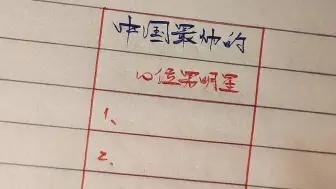 中国最帅的
10位男明星
1、
2、